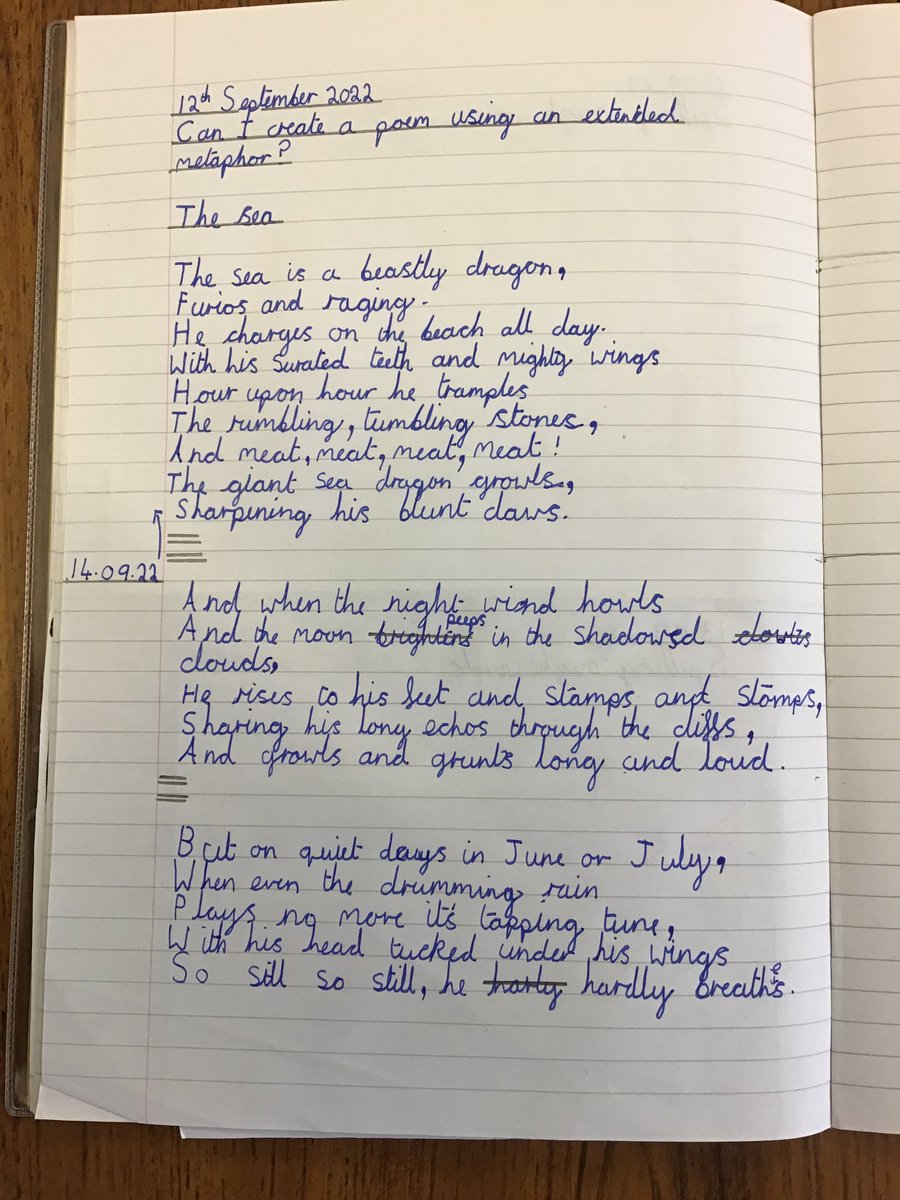 12th September 2022
Can I create a poem using an extended
metaphor?
The sea
The sea is a beastly dragon,
Furios and raging.
He charges on the beach all day.
With his surated teeth and mighty wings
Hour upon hour he tramples
The rumbling, tumbling stones,
And meat, meat, meat, meat!
The giant sea dragon growls,
Sharpening his blunt claws.
14.09.22
And when the night wind howls
And the moon brightens peeps in the shadowed clowds
clouds,
He rises to his feet and stamps and stomps,
Sharing his long echos through the cliffs,
And growls and grunts long and loud.
But on quiet days in June or July,
When even the drumming rain
Plays no more it's tapping tune,
With his head tucked under his wings
So still so still, he harly hardly breathes.